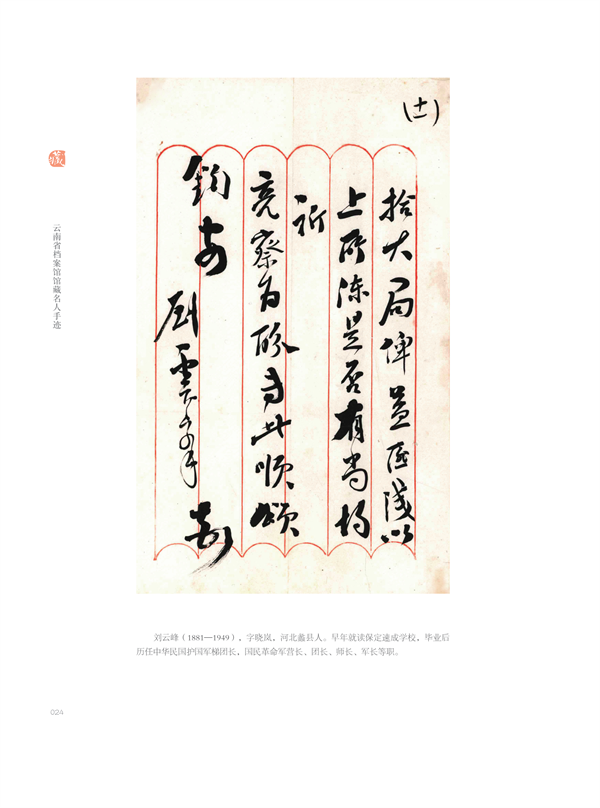 (十一)
於大局俾益匪淺以
上所陳是否有當均
祈
亮察為盼專此順頌
鈞安
劉雲峯
藏
云南省档案馆馆藏名人手迹
刘云峰（1881—1949），字晓岚，河北蠡县人。早年就读保定速成学校，毕业后
历任中华民国护国军梯团长，国民革命军营长、团长、师长、军长等职。
024